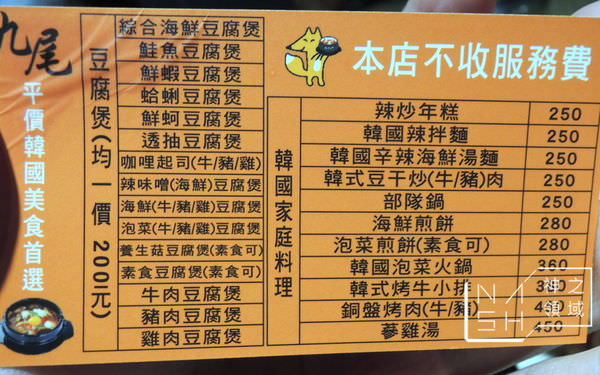 九尾
平價韓國美食首選
豆腐煲(均一價 200元)
綜合海鮮豆腐煲
鮭魚豆腐煲
鮮蝦豆腐煲
蛤蜊豆腐煲
鮮蚵豆腐煲
透抽豆腐煲
咖哩起司(牛/豬/雞)
辣味噌(海鮮)豆腐煲
海鮮(牛/豬/雞)豆腐煲
泡菜(牛/豬/雞)豆腐煲
養生菇豆腐煲(素食可)
素食豆腐煲(素食可)
牛肉豆腐煲
豬肉豆腐煲
雞肉豆腐煲
本店不收服務費
韓國家庭料理
辣炒年糕 250
韓國辣拌麵 250
韓國辛辣海鮮湯麵 250
韓式豆干炒(牛/豬)肉 250
部隊鍋 250
海鮮煎餅 280
泡菜煎餅(素食可) 280
韓國泡菜火鍋 360
韓式烤牛小排
銅盤烤肉(牛/豬)
蔘雞湯 450
NISH
神之領域